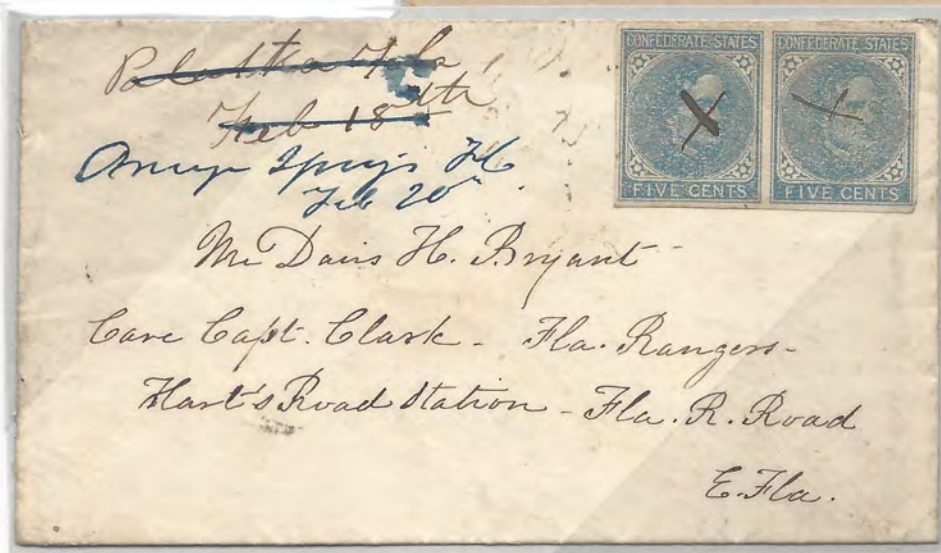 Palatka Fla
Feb 18th
Orange Springs Fl
Feb 20
CONFEDERATE STATES
FIVE CENTS
CONFEDERATE STATES
FIVE CENTS
Mr Davis H. Bryant
Care Capt. Clark - Fla. Rangers -
Hart's Road Station - Fla. R. Road
E. Fla.